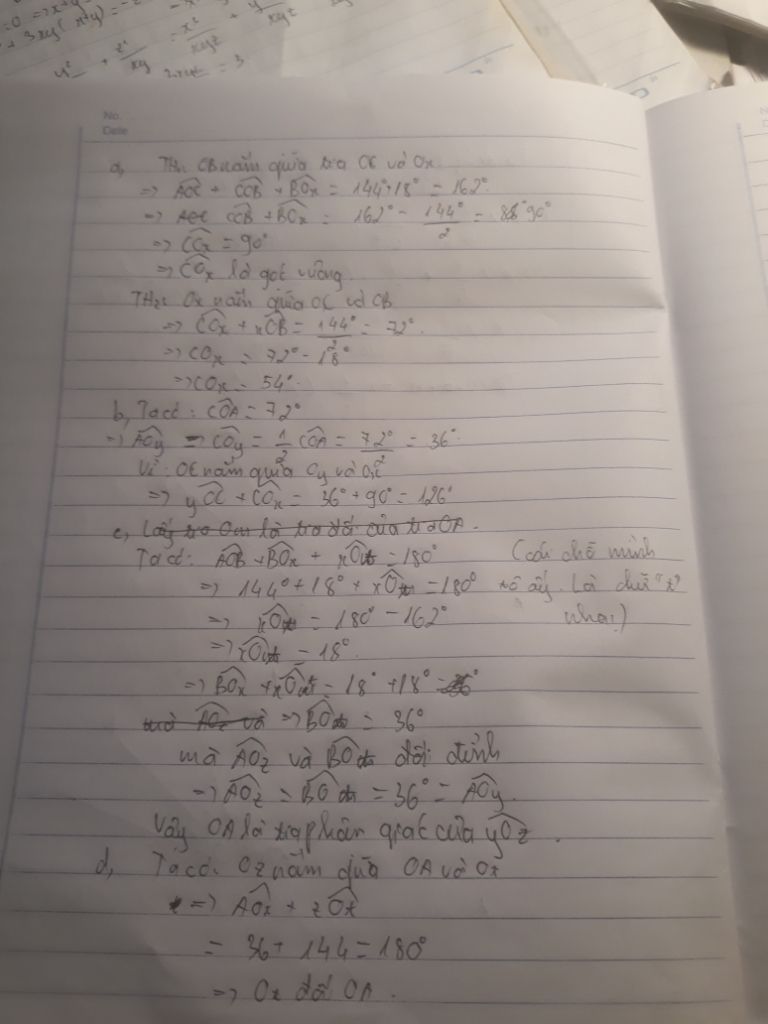 =0 => x+y=-z
+ 3xy(x+y)
= 3
No.
Date
a, TH1: OB nằm giữa tia OC và Ox
=> AOC + COB + BOx = 144° + 18° = 162°
=> COB + BOx = 162° - 144°/2 = 90°
=> COx = 90°
=> COx là góc vuông.
TH2: Ox nằm giữa OC và OB
=> COx + xOB = 144°/2 = 72°.
=> COx = 72° - 18°
=> COx = 54°.
b, Ta có: COA = 72°
=> AOy = COy = 1/2 COA = 72°/2 = 36°
Vì: OC nằm giữa Oy và Ox
=> yOC + COx = 36° + 90° = 126°
c, Lấy tia Om là tia đối của tia OA.
Ta có: AOB + BOx + xOt = 180° (cái chỗ mình
=> 144° + 18° + xOt = 180° tô ấy. Là chữ "t"
=> xOt = 180° - 162° nha!)
=> xOt = 18°.
=> BOx + xOt = 18° + 18° = 36°
mà AOz và => BOt = 36°
mà AOz và BOt đối đỉnh
=> AOz = BOt = 36° = AOy.
Vậy OA là tia phân giác của yOz.
d, Ta có: Oz nằm giữa OA và Ot
=> AOz + zOt
= 36 + 144 = 180°
=> Ot đối OA.